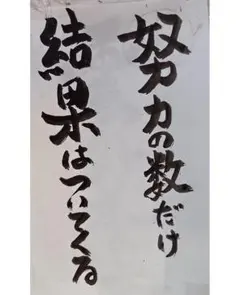 努力の数だけ
結果はついてくる